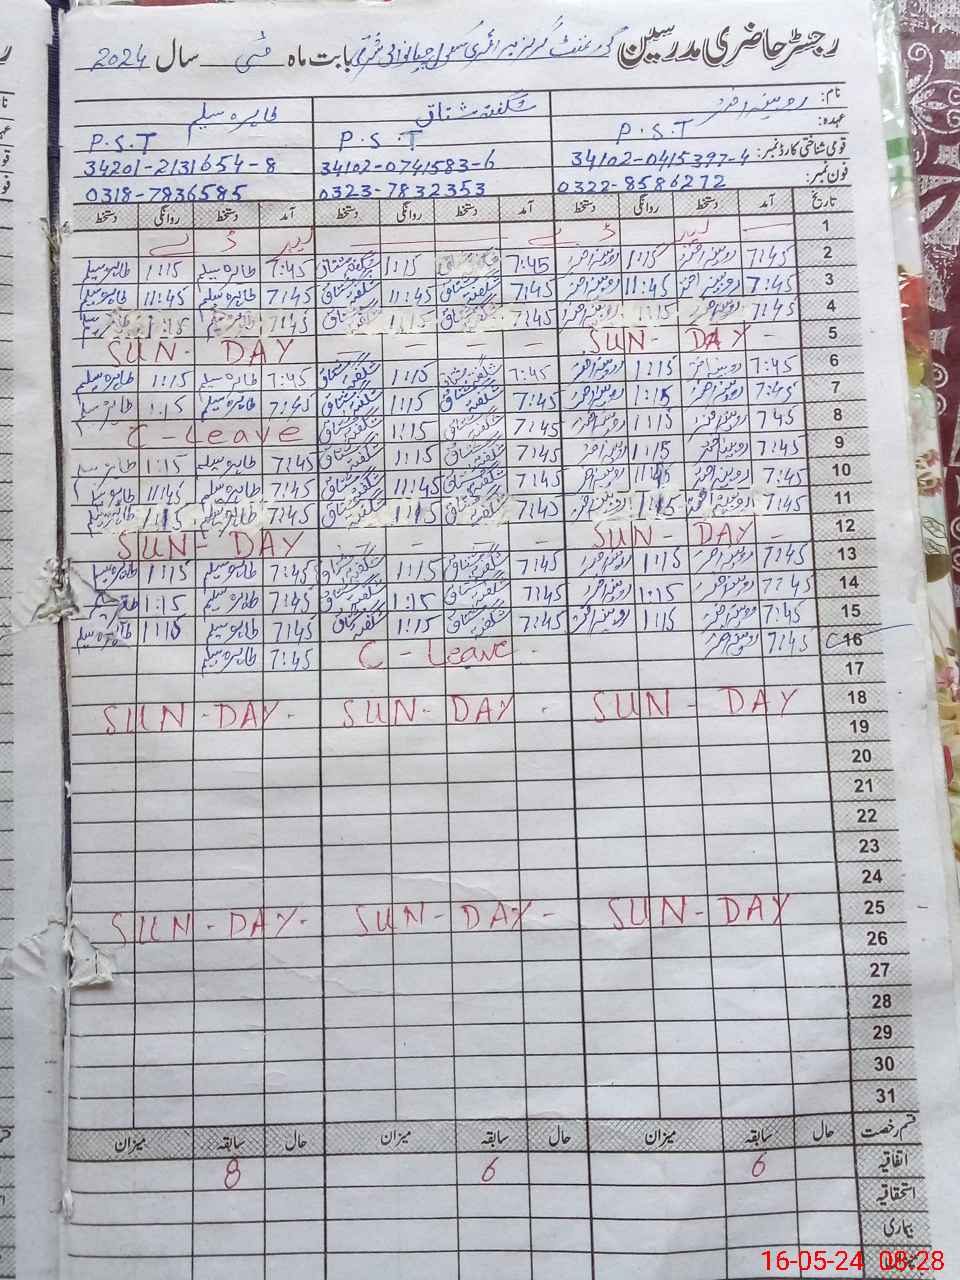 رجسٹر حاضری مدرسین گورنمنٹ گرلز پرائمری سکول بابت ماہ مئی سال 2024
نام: روبینہ اختر شگفتہ مشتاق طاہرہ سلیم
عہدہ: P.S.T P.S.T P.S.T
قومی شناختی کارڈ نمبر: 34102-0415397-4 34102-0741583-6 34201-2131654-8
فون نمبر: 0322-8586272 0323-7832353 0318-7836585
تاریخ آمد دستخط روانگی دستخط آمد دستخط روانگی دستخط آمد دستخط روانگی دستخط
1 لیبر ڈے لیبر ڈے
2 7:45 روبینہ اختر 1:15 روبینہ اختر 7:45 شگفتہ مشتاق 1:15 شگفتہ مشتاق 7:45 طاہرہ سلیم 1:15 طاہرہ سلیم
3 7:45 روبینہ اختر 11:45 روبینہ اختر 7:45 شگفتہ مشتاق 11:45 شگفتہ مشتاق 7:45 طاہرہ سلیم 11:45 طاہرہ سلیم
4 7:45 روبینہ اختر 1:15 روبینہ اختر 7:45 شگفتہ مشتاق 1:15 شگفتہ مشتاق 7:45 طاہرہ سلیم 1:15 طاہرہ سلیم
5 SUN - DAY - - - - SUN - DAY
6 7:45 روبینہ اختر 1:15 روبینہ اختر 7:45 شگفتہ مشتاق 1:15 شگفتہ مشتاق 7:45 طاہرہ سلیم 1:15 طاہرہ سلیم
7 7:45 روبینہ اختر 1:15 روبینہ اختر 7:45 شگفتہ مشتاق 1:15 شگفتہ مشتاق 7:45 طاہرہ سلیم 1:15 طاہرہ سلیم
8 7 45 روبینہ اختر 1:15 روبینہ اختر 7:45 شگفتہ مشتاق 1:15 شگفتہ مشتاق C - Leave
9 7:45 روبینہ اختر 1:15 روبینہ اختر 7:45 شگفتہ مشتاق 1:15 شگفتہ مشتاق 7:45 طاہرہ سلیم 1:15 طاہرہ سلیم
10 7:45 روبینہ اختر 11:45 روبینہ اختر 7:45 شگفتہ مشتاق 11:45 شگفتہ مشتاق 7:45 طاہرہ سلیم 11:45 طاہرہ سلیم
11 7:45 روبینہ اختر 1:15 روبینہ اختر 7:45 شگفتہ مشتاق 1:15 شگفتہ مشتاق 7:45 طاہرہ سلیم 1:15 طاہرہ سلیم
12 SUN - DAY - - - SUN - DAY
13 7:45 روبینہ اختر 1:15 روبینہ اختر 7:45 شگفتہ مشتاق 1:15 شگفتہ مشتاق 7:45 طاہرہ سلیم 1:15 طاہرہ سلیم
14 7:45 روبینہ اختر 1:15 روبینہ اختر 7:45 شگفتہ مشتاق 1:15 شگفتہ مشتاق 7:45 طاہرہ سلیم 1:15 طاہرہ سلیم
15 7:45 روبینہ اختر 1:15 روبینہ اختر 7:45 شگفتہ مشتاق 1:15 شگفتہ مشتاق 7:45 طاہرہ سلیم 1:15 طاہرہ سلیم
16 7:45 روبینہ اختر C - Leave 7:45 طاہرہ سلیم
17
18 SUN - DAY SUN - DAY SUN - DAY
19
20
21
22
23
24
25 SUN - DAY SUN - DAY SUN - DAY
26
27
28
29
30
31
قسم رخصت حال سابقہ میزان حال سابقہ میزان حال سابقہ میزان
اتفاقیہ 6 6 8
استحقاقیہ
بیماری
16-05-24 08:28